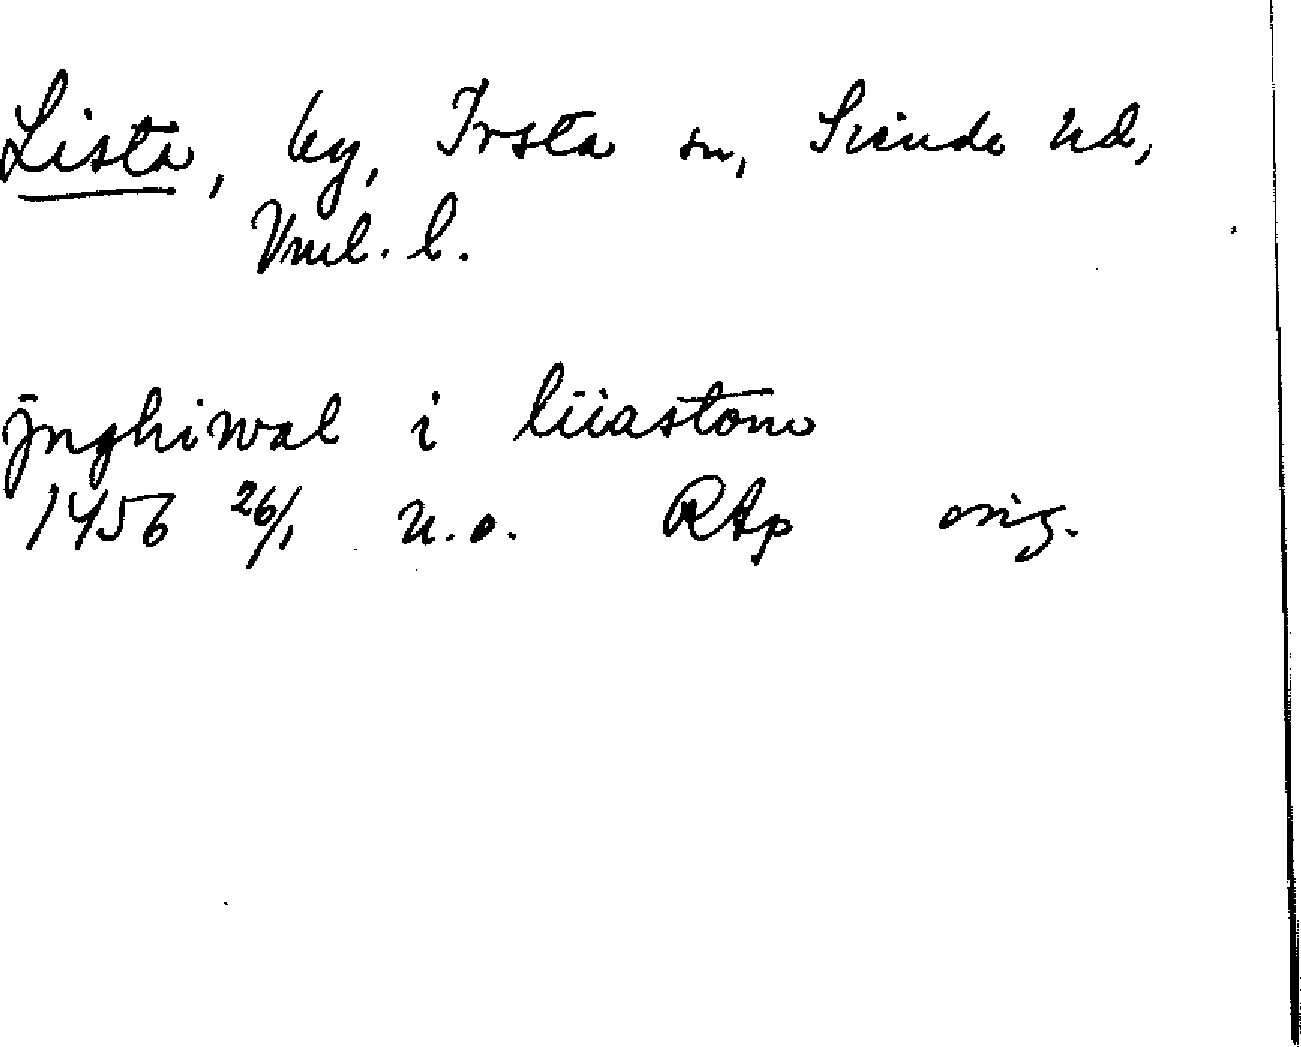 Lista, by, Irsta sn, Siende hd,
Vml. l.
jnghiwal i liiastom
1456 26/1 u.o. RAp orig.